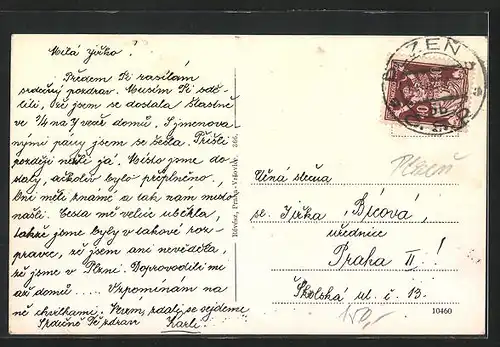 Milá Jiřko!
Předem Ti zasílám
srdečný pozdrav. Musím Ti sdě-
liti, že jsem se dostala šťastně
ve 1/4 na 7 več. domů. S jmenova-
nými pány jsem se sešla. Přišli
později než já. Místo jsme do-
staly, ačkoliv bylo přeplněno,
oni měli známé a tak nám místo
našli. Cesta mě velice uběhla,
takže jsme byly v takové roz-
pravce, že jsem ani nevěděla,
že jsme v Plzni. Doprovodili mě
až domů..... Vzpomínám na
ně chvilkami. Nevím, zdali se sejdeme
Srdečně Tě zdraví Karla.
Růvění, Praha-Vršovice. 366.
PLZEŇ
Plzeň
Vážná slečna
sl. Jiřka Bícová,
úřednice
Praha II.!
Školská ul. č. 13.
10460